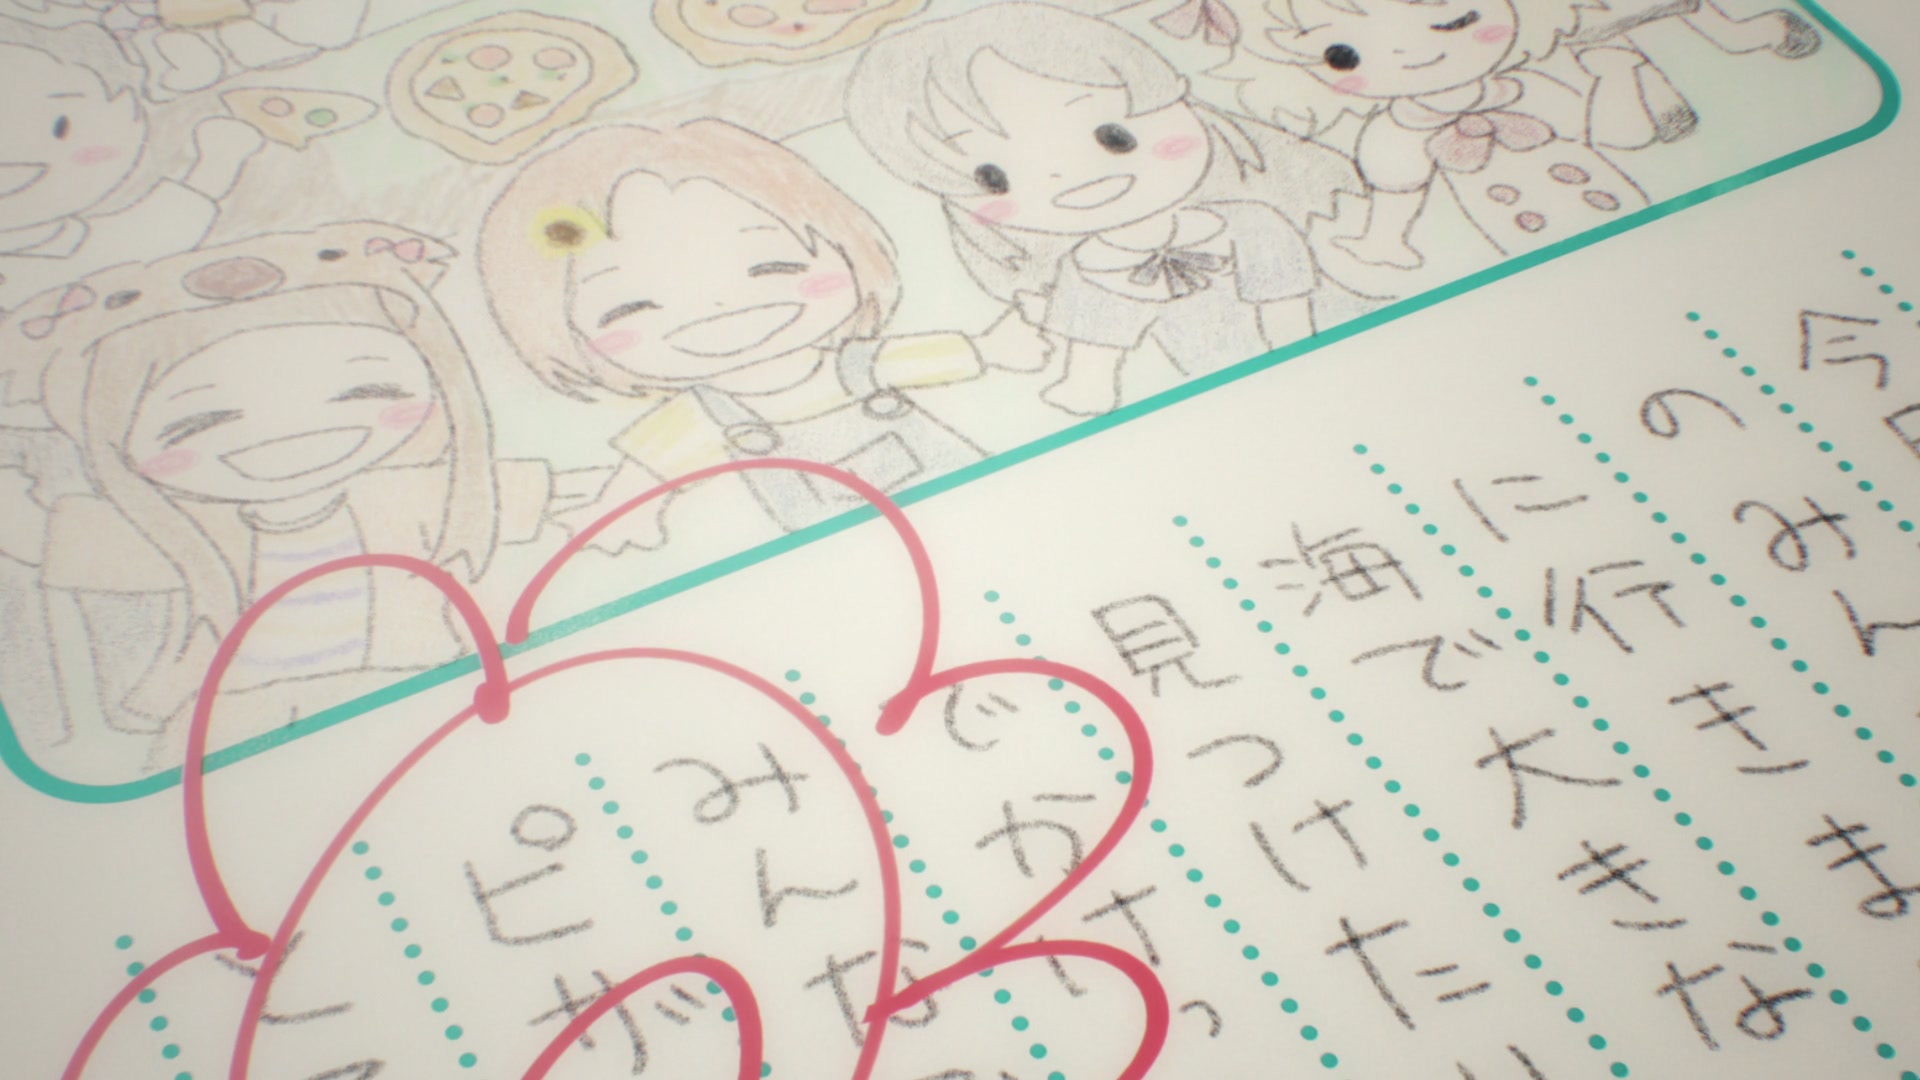 今日
のみん
に行きま
海で大きな
見つけた
みんな
ピザ